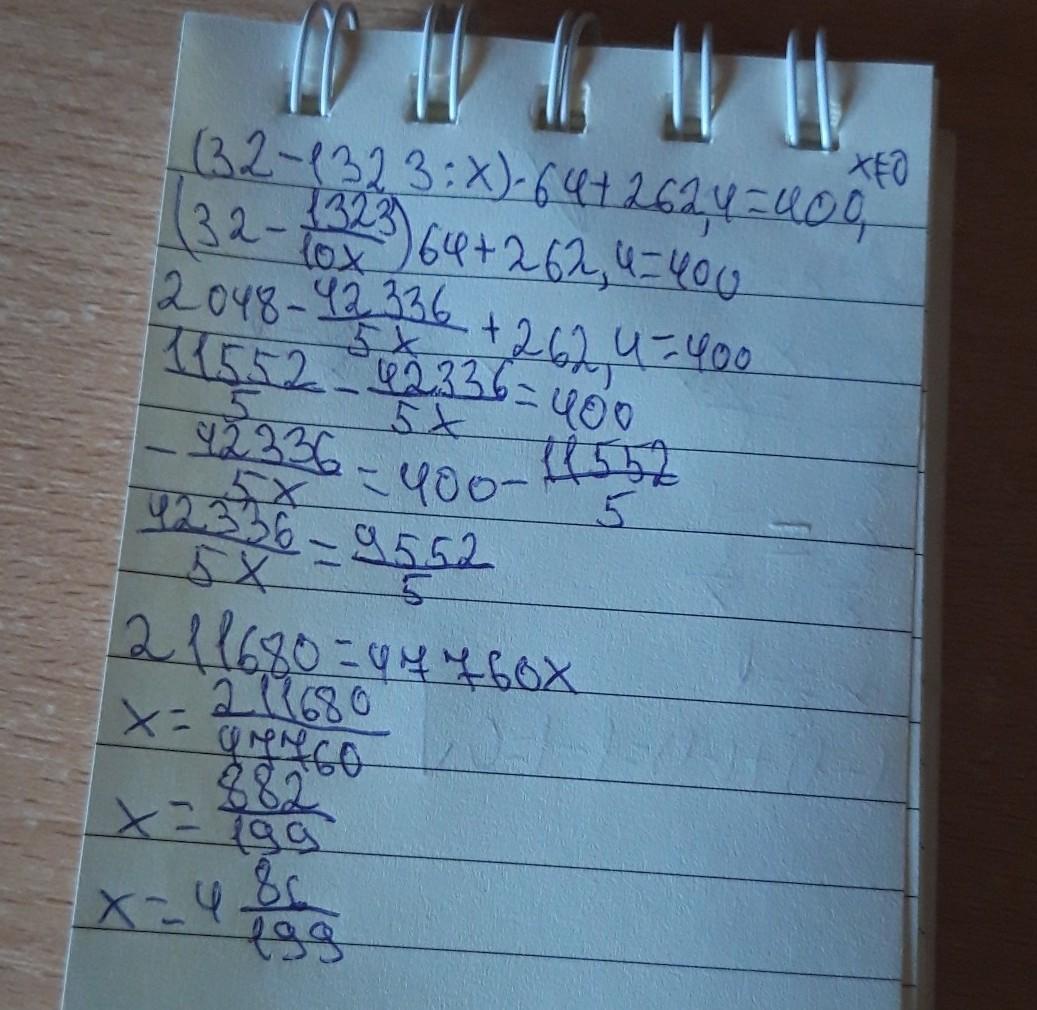 (32-1323:x)·64+262,4=400, x≠0
(32-1323/10x)64+262,4=400
2048-42336/5x+262,4=400
11552/5-42336/5x=400
-42336/5x=400-11552/5
42336/5x=9552/5
211680=47760x
x=211680/47760
x=882/199
x=4 86/199